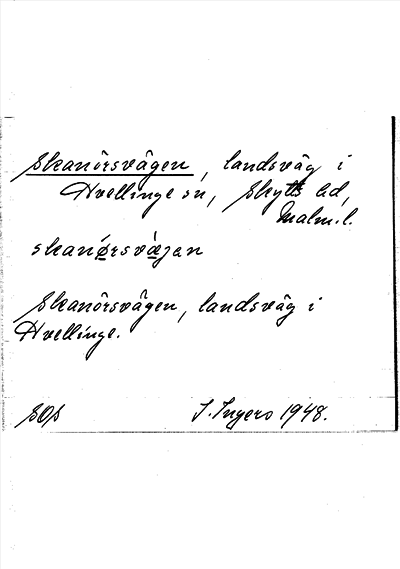 Skanörsvägen, landsväg i
Hvellinge sn, Skytts hd,
Malm.l.
skanǿrsvǽjan
Skanörsvägen, landsväg i
Hvellinge.
I. Ingers 1948.